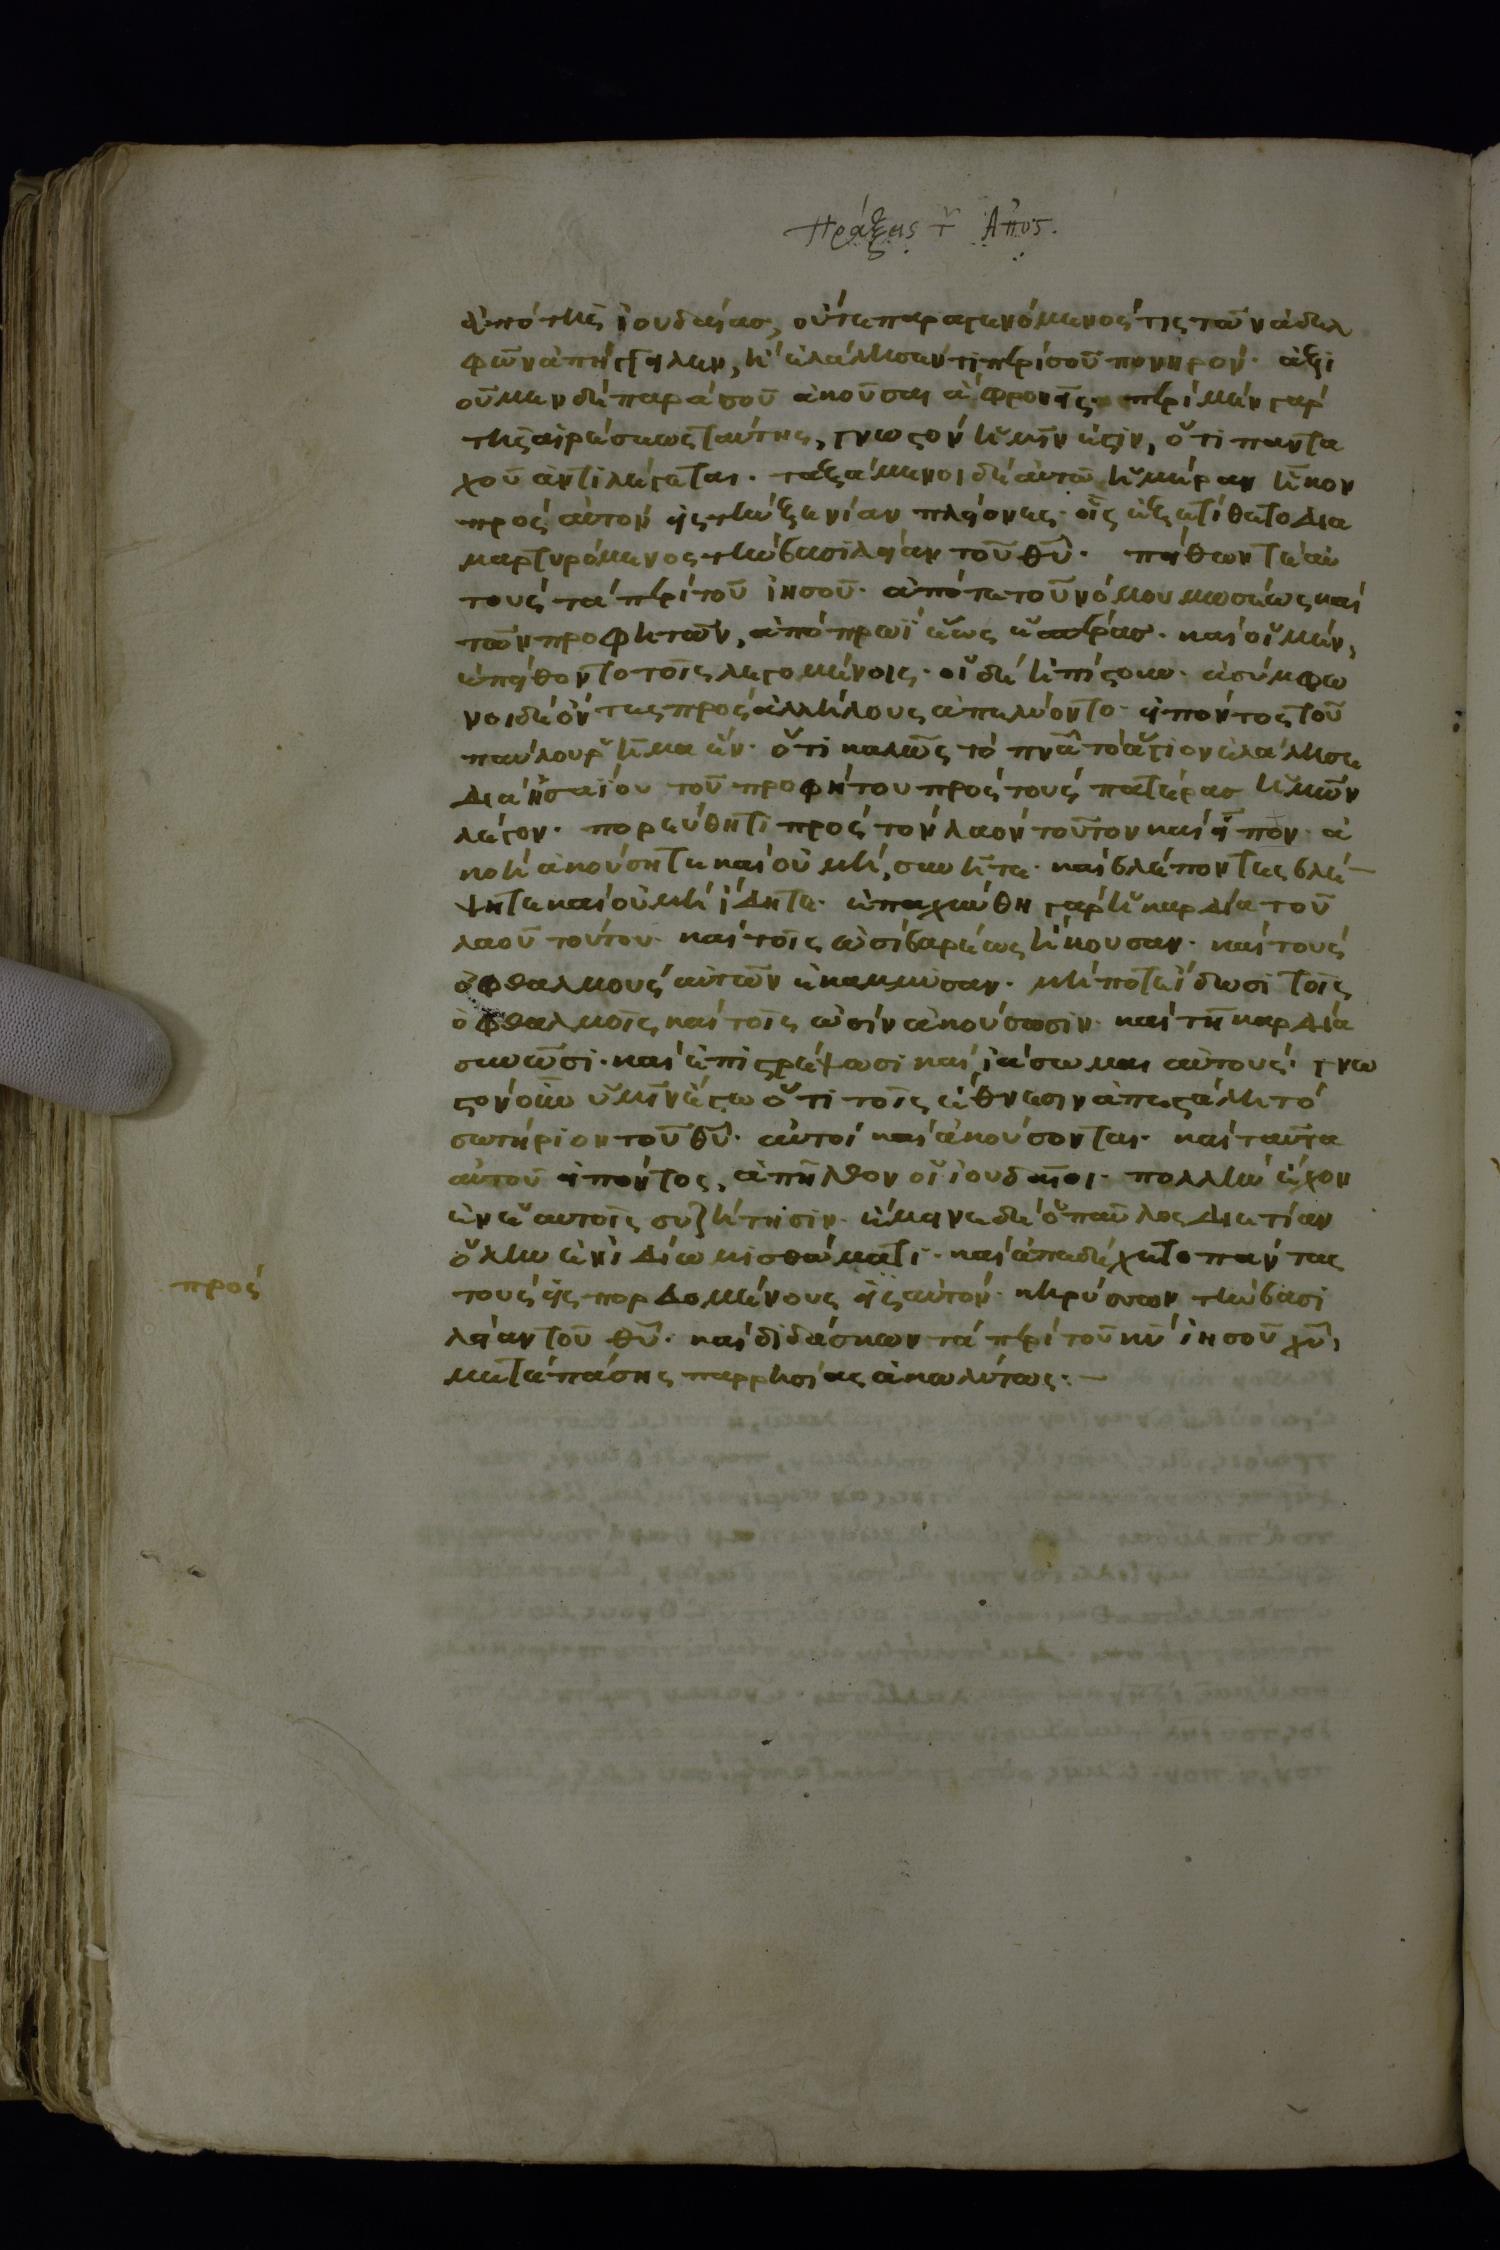 Πράξεις τ Ἀπος.
ἀπὸ τῆς ἰουδαίας, οὔτε παραγενόμενός τις τῶν ἀδελ
φῶν ἀπήγγειλεν, ἢ ἐλάλησέν τι περὶ σοῦ πονηρόν· ἀξι
οῦμεν δὲ παρὰ σοῦ ἀκοῦσαι ἃ φρονεῖς· περὶ μὲν γὰρ
τῆς αἱρέσεως ταύτης, γνωστὸν ἡμῖν ἐστιν, ὅτι παντα
χοῦ ἀντιλέγεται· ταξάμενοι δὲ αὐτῶ ἡμέραν ἧκον
πρὸς αὐτὸν εἰς τὴν ξενίαν πλείονες· οἷς ἐξετίθετο δια
μαρτυρόμενος τὴν βασιλείαν τοῦ θῦ· πείθων τε αὐ
τοὺς τὰ περὶ τοῦ ἰησοῦ· ἀπό τε τοῦ νόμου μωσέως καὶ
τῶν προφητῶν, ἀπὸ πρωῒ ἕως ἑσπέρας· καὶ οἱ μὲν,
ἐπείθοντο τοῖς λεγομένοις· οἱ δὲ ἠπίστουν· ἀσύμφω
νοι δὲ ὄντες πρὸς ἀλλήλους ἀπελύοντο· εἰπόντος τοῦ
παύλου ῥῆμα ἕν· ὅτι καλῶς τὸ πνᾶ τὸ ἅγιον ἐλάλησε
διὰ ἡσαΐου τοῦ προφήτου πρὸς τοὺς πατέρας ἡμῶν
λέγον· πορεύθητι πρὸς τὸν λαὸν τοῦτον καὶ εἶπον· ἀ
κοῇ ἀκούσητε καὶ οὐ μὴ, συνῆτε· καὶ βλέποντες βλέ
ψητε καὶ οὐ μὴ ἴδητε· ἐπαχύνθη γὰρ ἡ καρδία τοῦ
λαοῦ τούτου· καὶ τοῖς ὠσὶ βαρέως ἤκουσαν· καὶ τοὺς
ὀφθαλμοὺς αὐτῶν ἐκάμμυσαν· μήποτε ἴδωσι τοῖς
ὀφθαλμοῖς καὶ τοῖς ὠσὶν ἀκούσωσιν· καὶ τῆ καρδία
συνῶσι· καὶ ἐπιστρέψωσι καὶ ἰάσωμαι αὐτούς· γνω
στὸν οὖν ὑμῖν ἔστω ὅτι τοῖς ἔθνεσιν ἀπεστάλη τὸ
σωτήριον τοῦ θῦ· αὐτοὶ καὶ ἀκούσονται· καὶ ταῦτα
αὐτοῦ εἰπόντος, ἀπῆλθον οἱ ἰουδαῖοι· πολλὴν ἔχον
ἐν ἑαυτοῖς συζήτησιν· ἔμεινε δὲ ὁ παῦλος διετίαν
ὅλην ἐν ἰδίω μισθώματι· καὶ ἀπεδέχετο πάντας
προς
τοὺς εἰσπορευομένους εἰς αὐτόν· κηρύσσων τὴν βασι
λείαν τοῦ θῦ· καὶ διδάσκων τὰ περὶ τοῦ κῦ ἰησοῦ χῦ,
μετὰ πάσης παρρησίας ἀκωλύτως·